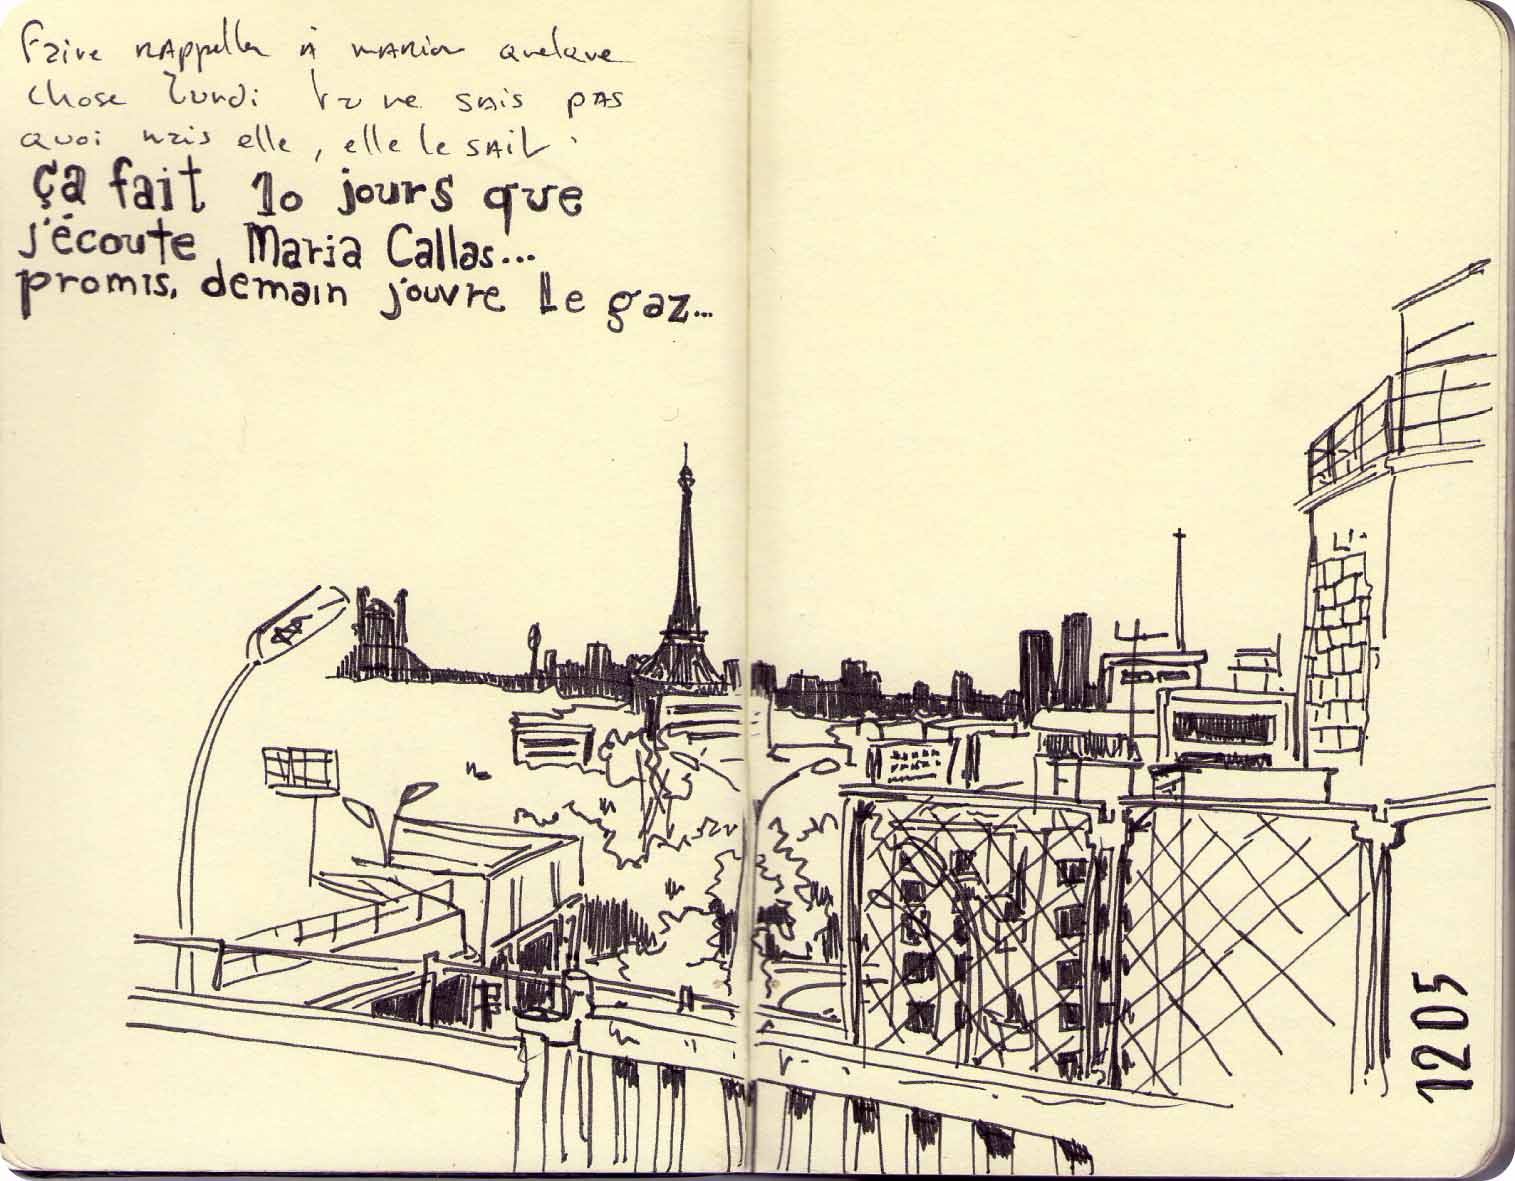 Faire rappeller à marion quelque
chose lundi je ne sais pas
quoi mais elle, elle le sait.
ça fait 10 jours que
j'écoute Maria Callas...
promis, demain j'ouvre le gaz...
1205